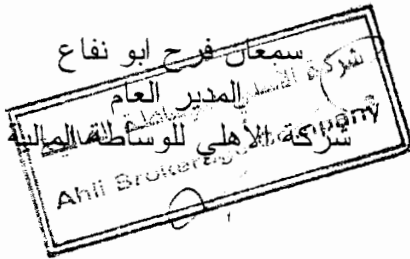 سمعان فرح ابو نفاع
المدير العام
شركة الأهلي للوساطة المالية
شركة
Ahli Brokerage Company